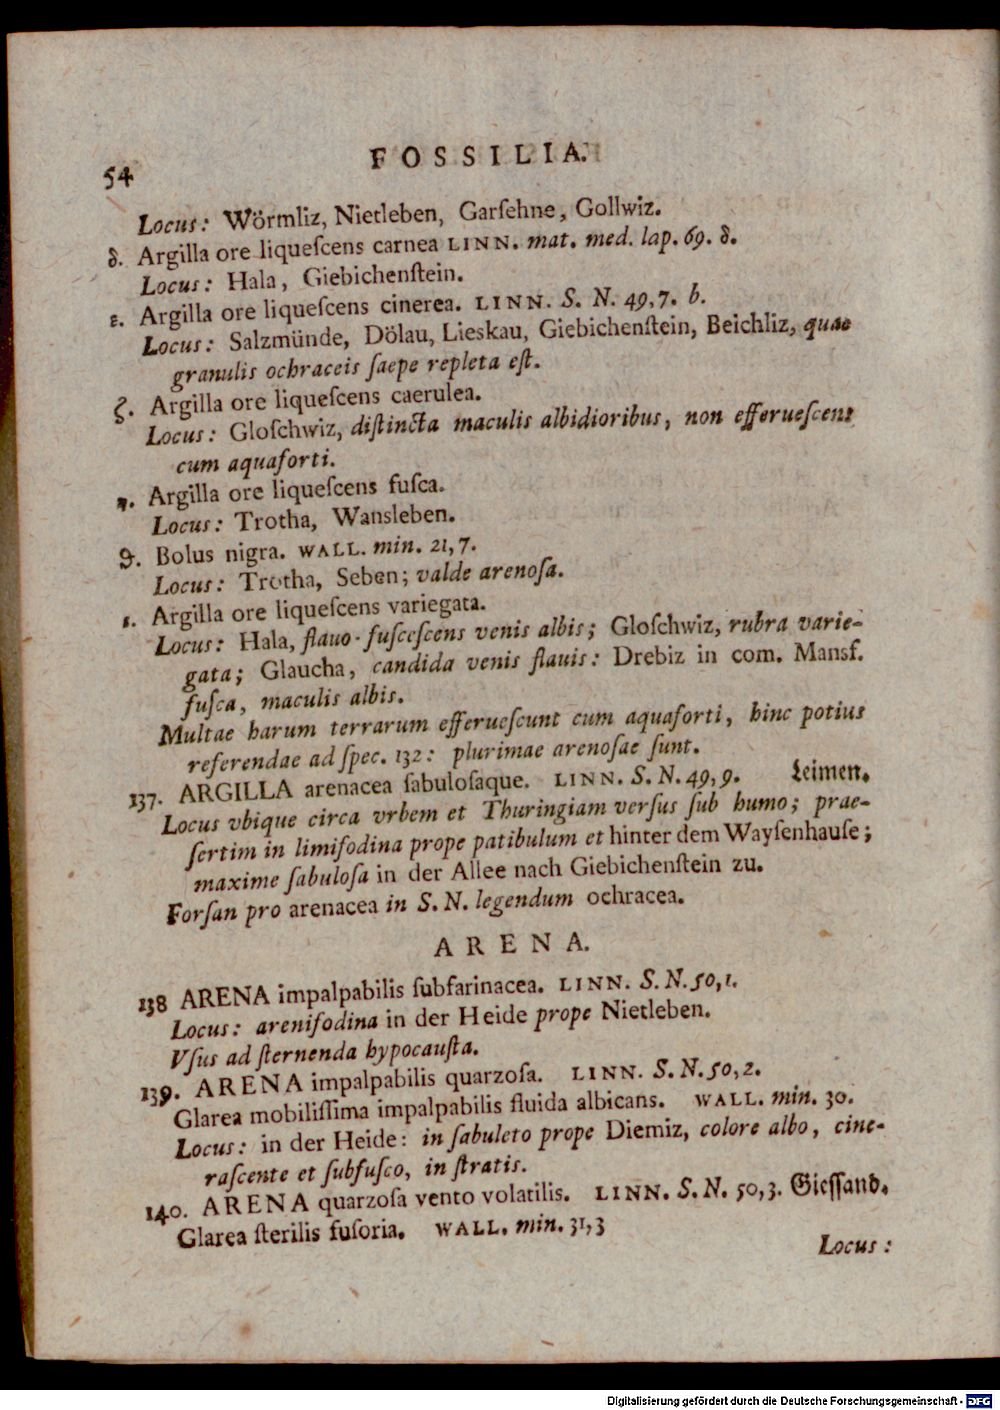 54
FOSSILIA.
Locus: Wörmliz, Nietleben, Garſehne, Gollwiz.
δ. Argilla ore liqueſcens carnea LINN. mat. med. lap. 69. δ.
Locus: Hala, Giebichenſtein.
ε. Argilla ore liqueſcens cinerea. LINN. S. N. 49,7. b.
Locus: Salzmünde, Dölau, Lieskau, Giebichenſtein, Beichliz, quae
granulis ochraceis ſaepe repleta eſt.
ζ. Argilla ore liqueſcens caerulea.
Locus: Gloſchwiz, diſtincta maculis albidioribus, non efferueſcens
cum aquaforti.
η. Argilla ore liqueſcens fuſca.
Locus: Trotha, Wansleben.
ϑ. Bolus nigra. WALL. min. 21,7.
Locus: Trotha, Seben; valde arenoſa.
ι. Argilla ore liqueſcens variegata.
Locus: Hala, flauo-fuſceſcens venis albis; Gloſchwiz, rubra varie-
gata; Glaucha, candida venis flauis: Drebiz in com. Mansf.
fuſca, maculis albis.
Multae harum terrarum efferueſcunt cum aquaforti, hinc potius
referendae ad ſpec. 132: plurimae arenoſae ſunt.
137. ARGILLA arenacea ſabuloſaque. LINN. S. N. 49, 9. Leimen.
Locus vbique circa vrbem et Thuringiam verſus ſub humo; prae-
ſertim in limifodina prope patibulum et hinter dem Wayſenhauſe;
maxime ſabuloſa in der Allee nach Giebichenſtein zu.
Forſan pro arenacea in S. N. legendum ochracea.
ARENA.
138 ARENA impalpabilis ſubfarinacea. LINN. S. N. 50,1.
Locus: arenifodina in der Heide prope Nietleben.
Vſus ad ſternenda hypocauſta.
139. ARENA impalpabilis quarzoſa. LINN. S. N. 50, 2.
Glarea mobiliſſima impalpabilis fluida albicans. WALL. min. 30.
Locus: in der Heide: in ſabuleto prope Diemiz, colore albo, cine-
raſcente et ſubfuſco, in ſtratis.
140. ARENA quarzoſa vento volatilis. LINN. S. N. 50,3. Gieſſand.
Glarea ſterilis fuſoria. WALL. min. 31,3
Locus:
Digitalisierung gefördert durch die Deutsche Forschungsgemeinschaft - DFG